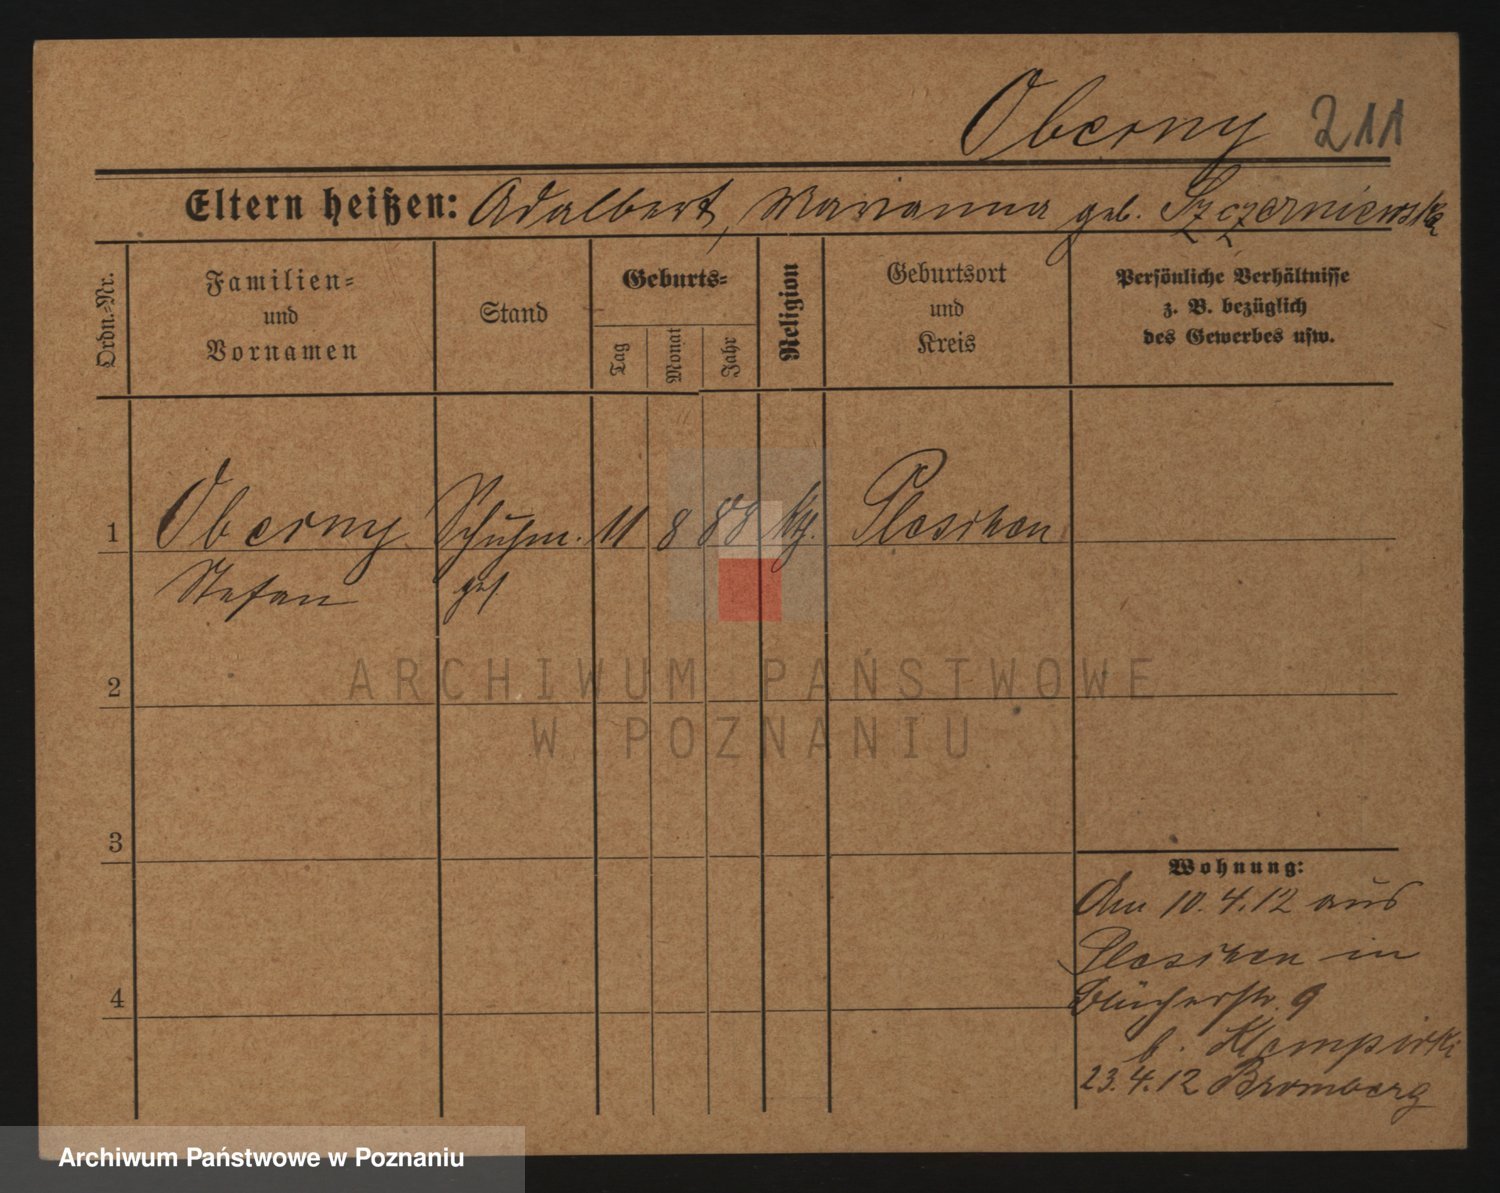 Oberny 211
Eltern heißen: Adalbert, Marianna geb. Szczerniewska
Ordn.-Nr.
Familien-
und
Vornamen
Stand
Geburts-
Tag
Monat
Jahr
Religion
Geburtsort
und
Kreis
Persönliche Verhältnisse
z. B. bezüglich
des Gewerbes usw.
1 Oberny Schuhm. 11 8 88 kth. Pleschen
Stefan ges
2
3
4
Wohnung:
Am 10.4.12 aus
Pleschen in
Blücherstr. 9
b.
23.4.12 Bromberg
ARCHIWUM PAŃSTWOWE
W POZNANIU
Archiwum Państwowe w Poznaniu